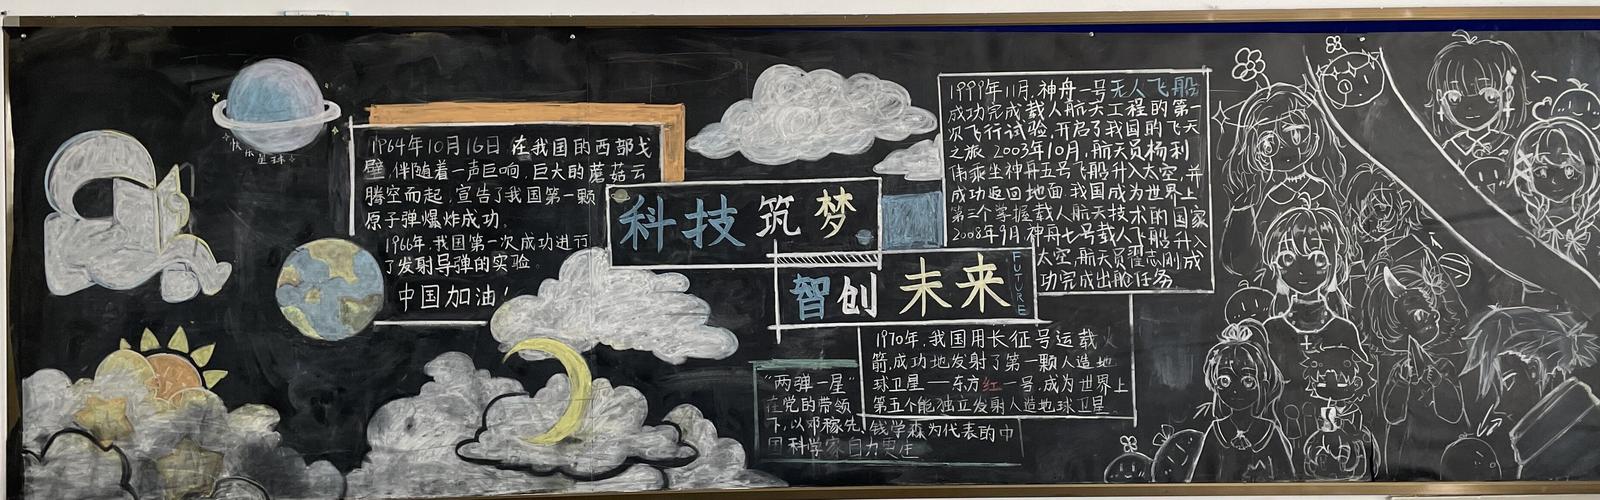 快乐
星球
1964年10月16日.在我国的西部戈
壁,伴随着一声巨响,巨大的蘑菇云
腾空而起,宣告了我国第一颗
原子弹爆炸成功.
1966年,我国第一次成功进行
了发射导弹的实验.
中国加油!
科技筑梦
智创未来
FUTURE
1999年11月,神舟一号无人飞船
成功完成载人航天工程的第一
次飞行试验,开启了我国的飞天
之旅.2003年10月,航天员杨利
伟乘坐神舟五号飞船升入太空,并
成功返回地面.我国成为世界上
第三个掌握载人航天技术的国家
2008年9月,神舟七号载人飞船升入
太空,航天员翟志刚成
功完成出舱任务.
1970年,我国用长征号运载火
箭,成功地发射了第一颗人造地
球卫星——东方红一号.成为世界上
第五个能独立发射人造地球卫星
"两弹一星"
在党的带领
下,以邓稼先,钱学森为代表的中
国科学家自力更生